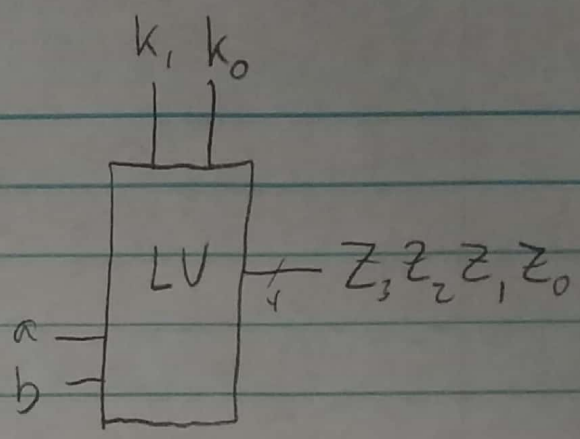 k₁ k₀
LU
4
Z₃ Z₂ Z₁ Z₀
a
b